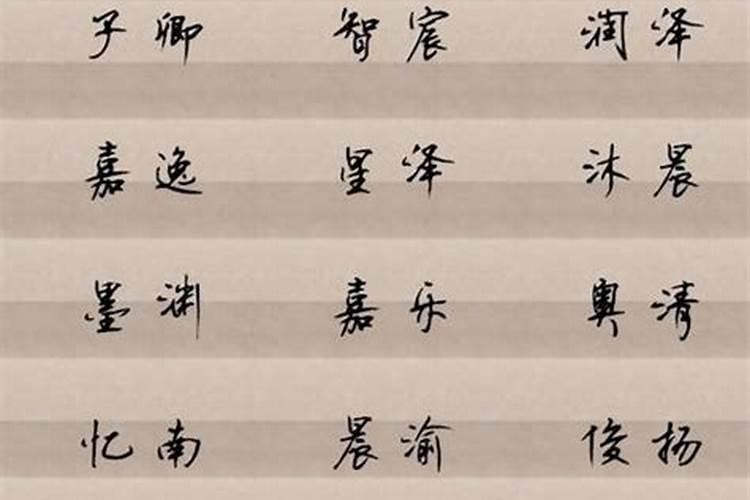 子卿 智宸 润泽
嘉逸 星泽 沐晨
墨渊 嘉乐 奥清
忆南 晨渝 俊扬